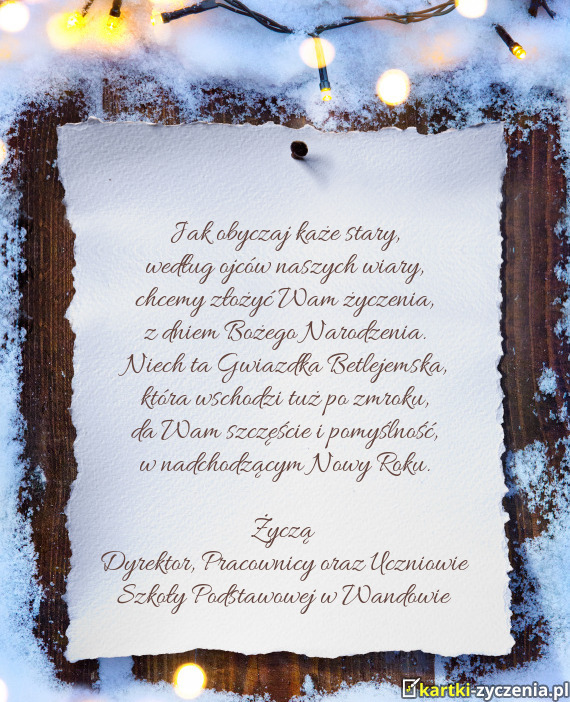 Jak obyczaj każe stary,
według ojców naszych wiary,
chcemy złożyć Wam życzenia,
z dniem Bożego Narodzenia.
Niech ta Gwiazdka Betlejemska,
która wschodzi tuż po zmroku,
da Wam szczęście i pomyślność,
w nadchodzącym Nowy Roku.
Życzą
Dyrektor, Pracownicy oraz Uczniowie
Szkoły Podstawowej w Wandowie
kartki-zyczenia.pl